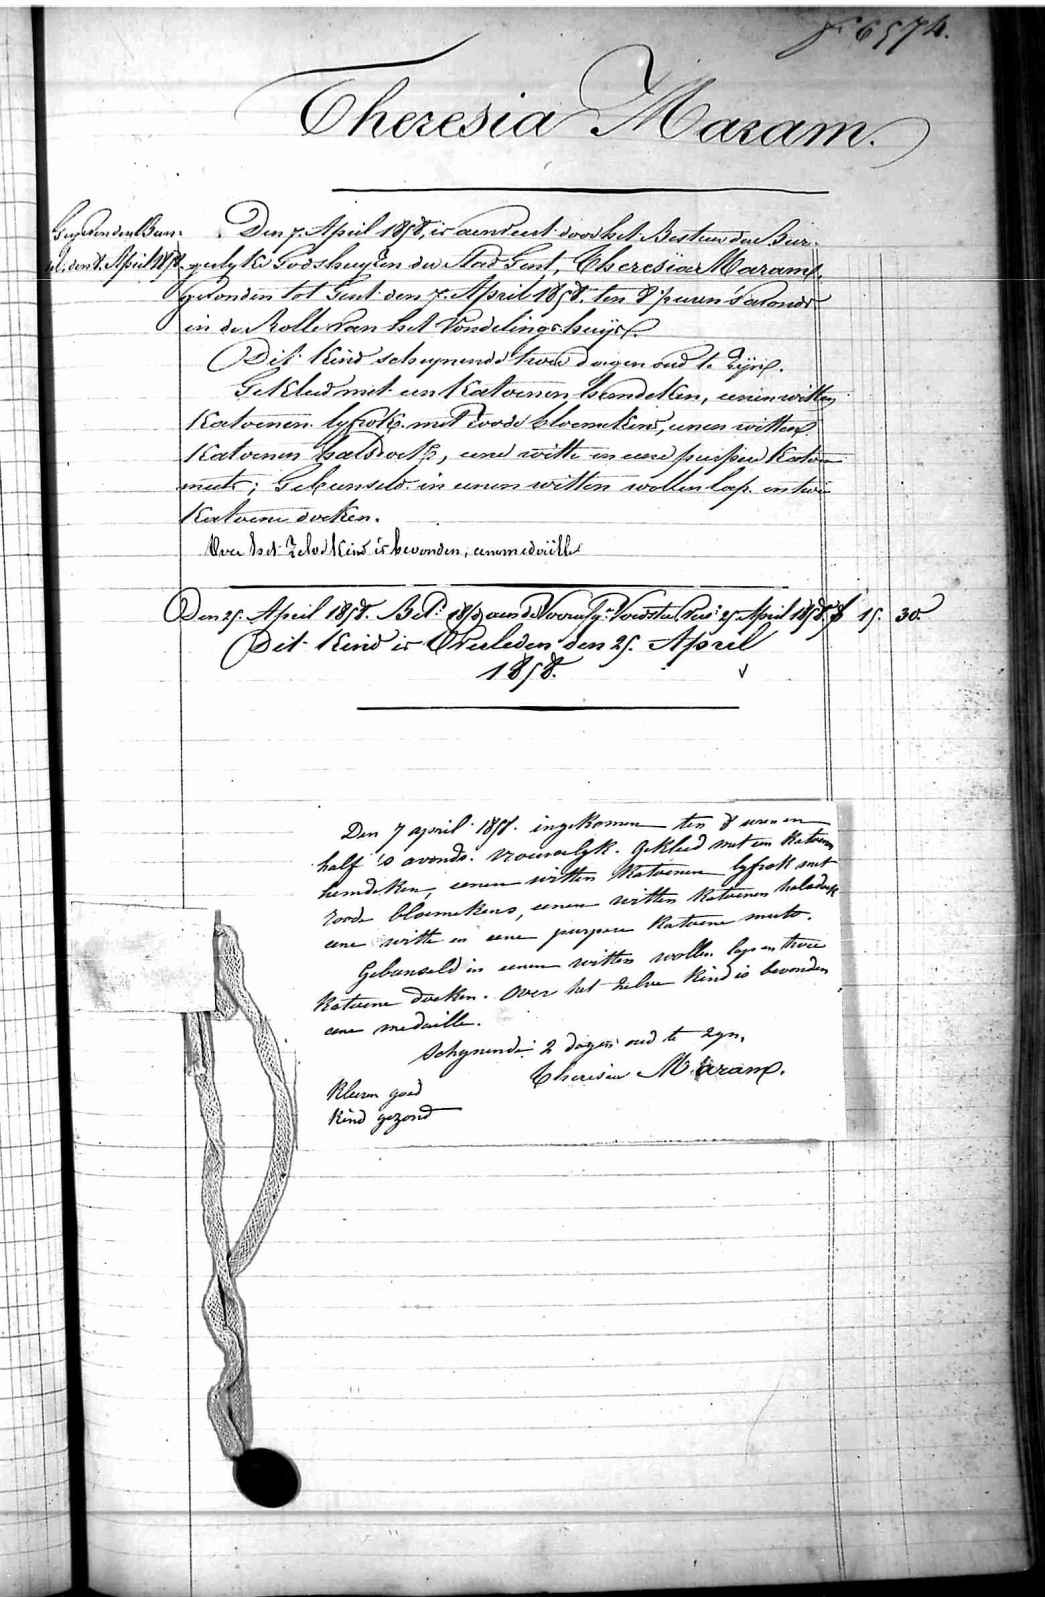 f. 6574.
Theresia Maram.
den 8. April 1858.
Den 7. April 1858, is aenveert door het Bestuer der Bur-
gerlyke Godshuyzen der Stad Gent, Theresia Maram,
gevonden tot Gent den 7. April 1858. ten 8 1/2 uren 's avonds
in de Rolle van het Vondelingshuys.
Dit Kind schynende twee dagen oud te zyn.
Gekleed met een Katoenen hemdeken, eenen witten
Katoenen lyfrok met roode bloemekens, eenen witten
Katoenen halsdoek, eene witte en eene purpere Katoene
muts; Gebunseld in eenen witten wollen lap en twee
Katoene doeken.
Over het zelve Kind is bevonden, eene medaille
Den 25. April 1858. Bet. 1858 aen de Voedster 25 April 1858. f 15. 30.
Dit Kind is Overleden den 25. April
1858.
Den 7 april 1858. ingekomen ten 8 uren en
half 's avonds. vrouwelyk. Gekleed met een Katoenen
hemdeken, eenen witten Katoenen lyfrok met
roode bloemekens, eenen witten Katoenen halsdoek
eene witte en eene purpere Katoene muts.
Gebunseld in eenen witten wollen lap en twee
Katoene doeken. Over het zelve Kind is bevonden
eene medaille.
Schynende 2 dagen oud te zyn.
Theresia Maram.
Kleeren goed
Kind gezond